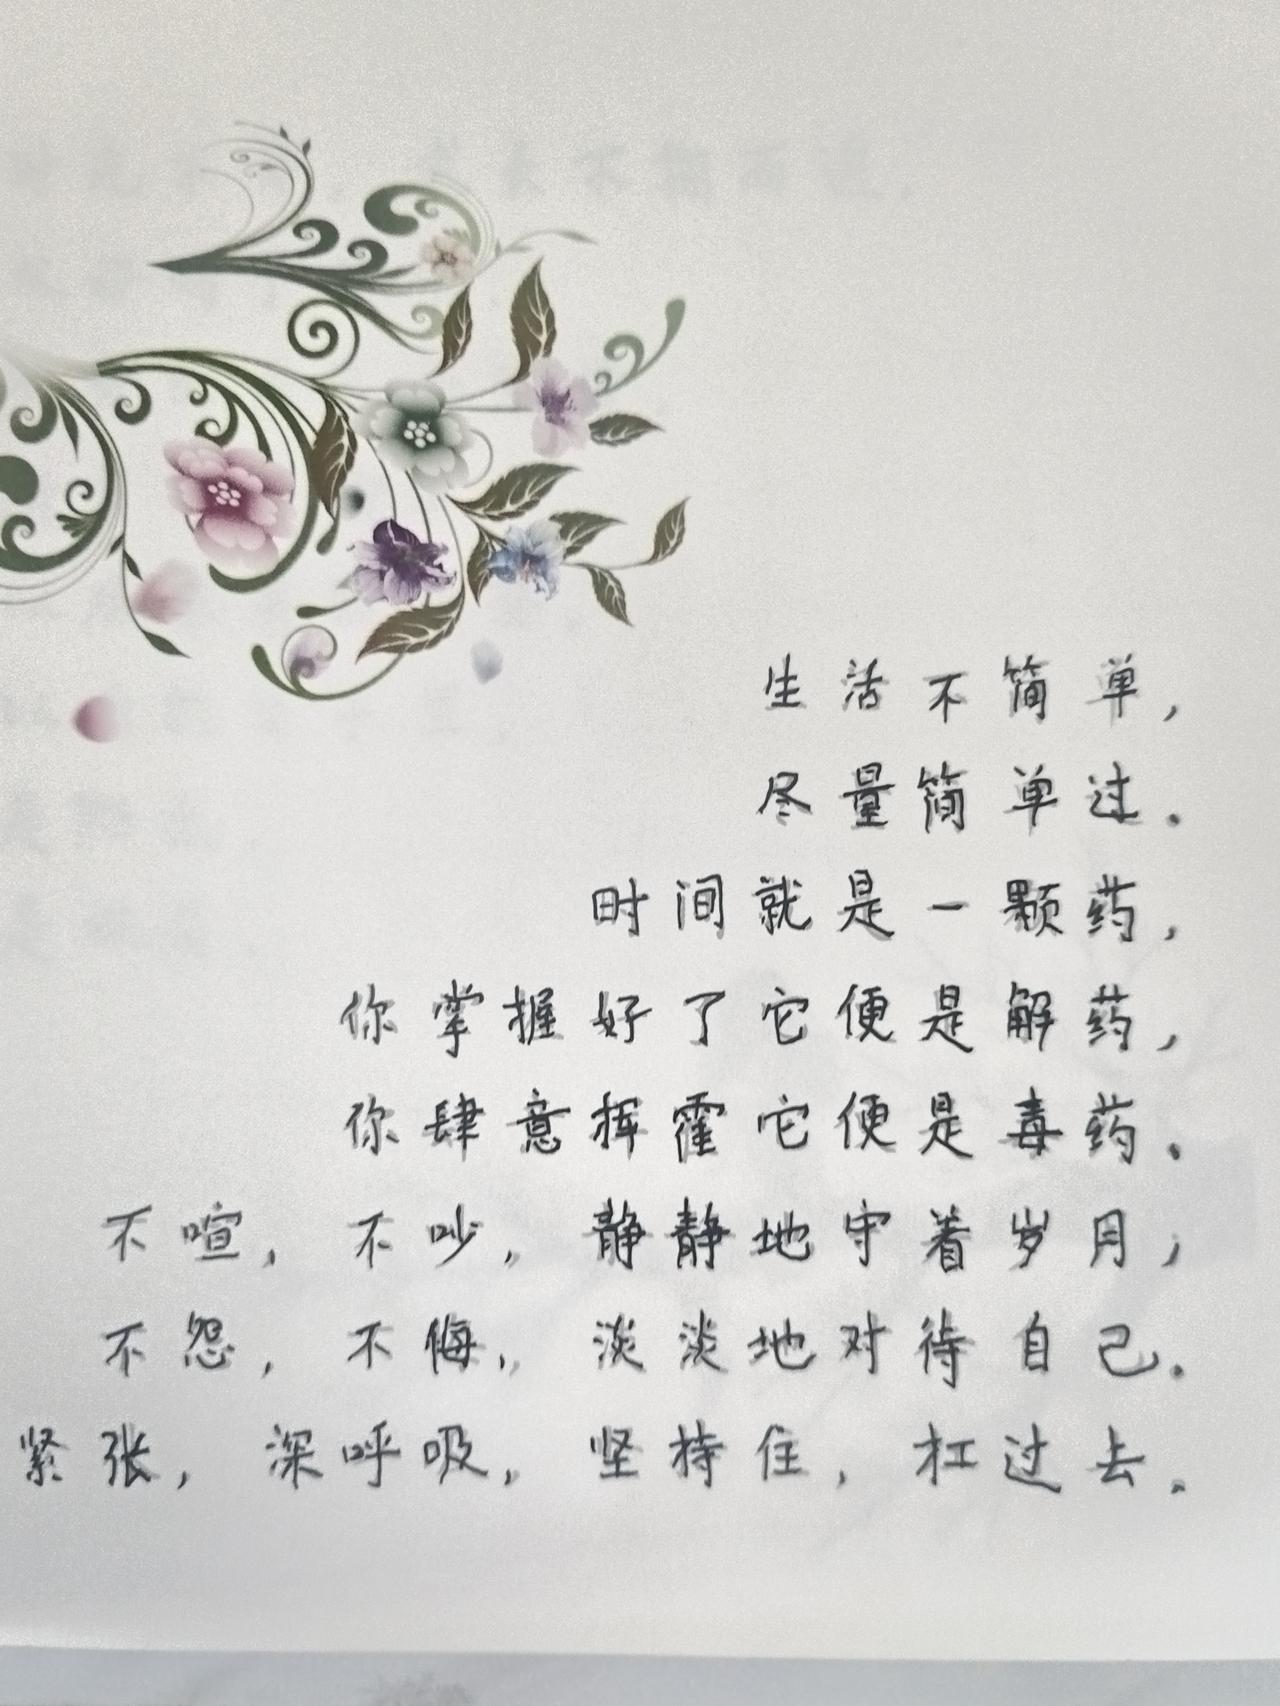 生活不简单，
尽量简单过．
时间就是一颗药，
你掌握好了它便是解药，
你肆意挥霍它便是毒药．
不喧，不吵，静静地守着岁月，
不怨，不悔，淡淡地对待自己．
紧张，深呼吸，坚持住，杠过去．